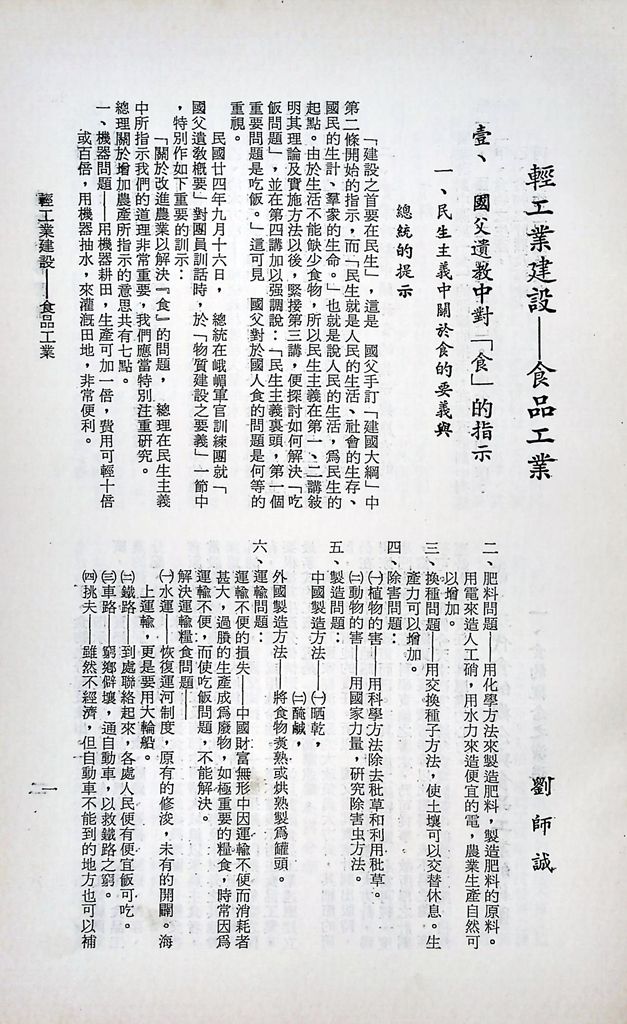 輕工業建設——食品工業
劉師誠
壹、國父遺教中對「食」的指示
一、民生主義中關於食的要義與
總統的提示
「建設之首要在民生」，這是　國父手訂「建國大綱」中
第二條開始的指示，而「民生就是人民的生活、社會的生存、
國民的生計、羣衆的生命。」也就是說人民的生活，爲民生的
起點。由於生活不能缺少食物，所以民生主義在第一、二講敍
明其理論及實施方法以後，緊接第三講，便探討如何解決「吃
飯問題」，並在第四講加以强調說：「民生主義裏頭，第一個
重要問題是吃飯。」這可見　國父對於國人食的問題是何等的
重視。
民國廿四年九月十六日，　總統在峨嵋軍官訓練團就「
國父遺敎概要」對團員訓話時，於「物質建設之要義」一節中
，特別作如下重要的訓示：
「關於改進農業以解決『食』的問題，　總理在民生主義
中所指示我們的道理非常重要，我們應當特別注重研究。
總理關於增加農產所指示的意思共有七點。
一、機器問題——用機器耕田，生產可加一倍，費用可輕十倍
或百倍，用機器抽水，來灌溉田地，非常便利。
二、肥料問題——用化學方法來製造肥料，製造肥料的原料。
用電來造人工硝，用水力來造便宜的電，農業生產自然可
以增加。
三、換種問題——用交換種子方法，使土壤可以交替休息。生
產力可以增加。
四、除害問題：
㈠植物的害——用科學方法除去秕草和利用秕草。
㈡動物的害——用國家力量，硏究除害虫方法。
五、製造問題：
中國製造方法——㈠晒乾，
㈡醃鹹，
外國製造方法——將食物煑熟或烘熟製爲罐頭。
六、運輸問題：
運輸不便的損失——中國財富無形中因運輸不便而消耗者
甚大，過賸的生產成爲廢物，如極重要的糧食，時常因爲
運輸不便，而使吃飯問題，不能解決。
解決運輸糧食問題——
㈠水運——恢復運河制度，原有的修浚，未有的開闢。海
上運輸，更是要用大輪船。
㈡鐵路——到處聯絡起來，各處人民便有便宜飯可吃。
㈢車路——窮鄉僻壤，通自動車，以救鐵路之窮。
㈣挑夫——雖然不經濟，但自動車不能到的地方也可以補
輕工業建設——食品工業